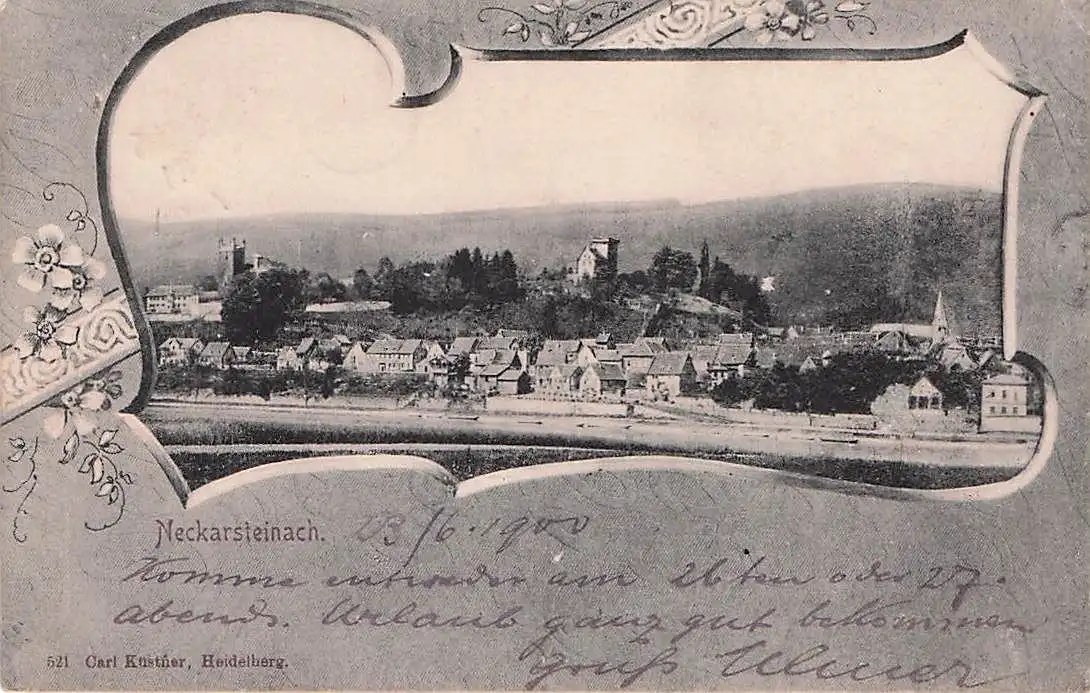 Neckarsteinach. 23/6. 1900
Komme entweder am 26ten oder 27.
abends. Urlaub ganz gut bekommen
Gruß
521 Carl Küstner, Heidelberg.